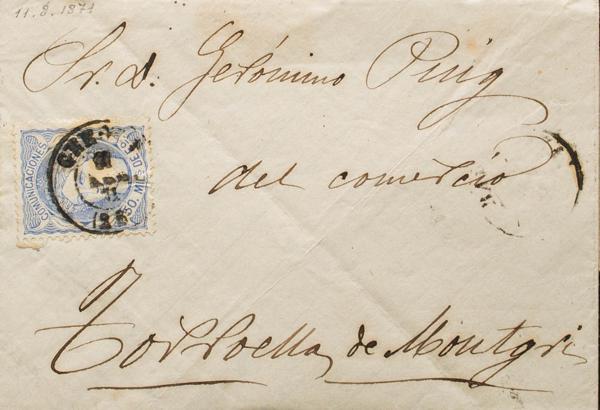 11.8.1871
Sr. d. Gerónimo Puig
del comercio
Torroella de Montgri
COMUNICACIONES
50 MIL. DE E.